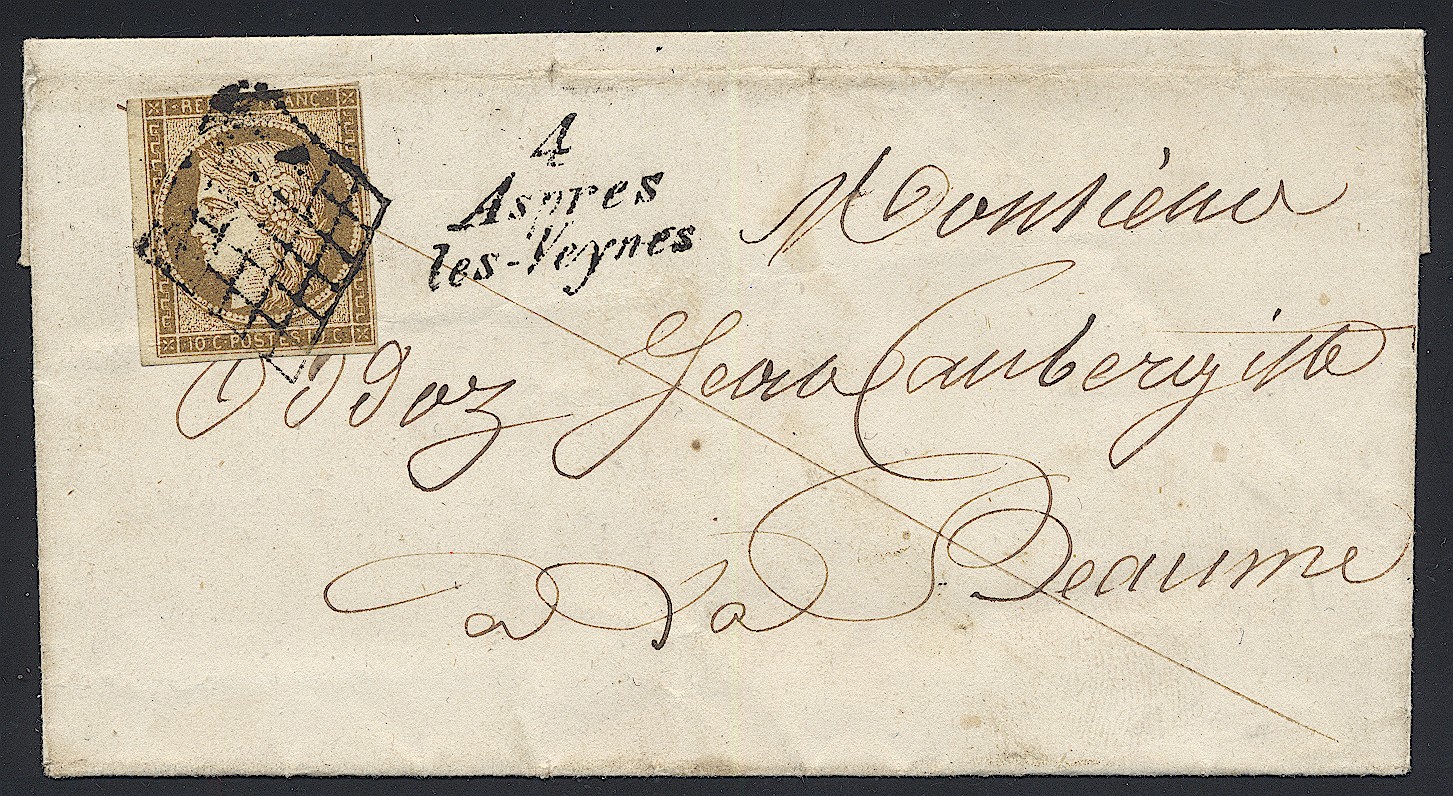 REPUB FRANC
10 C · POSTES 10 C
4
Aspres
les-Veynes
Monsieur
Jean aubergiste
a La Beaume